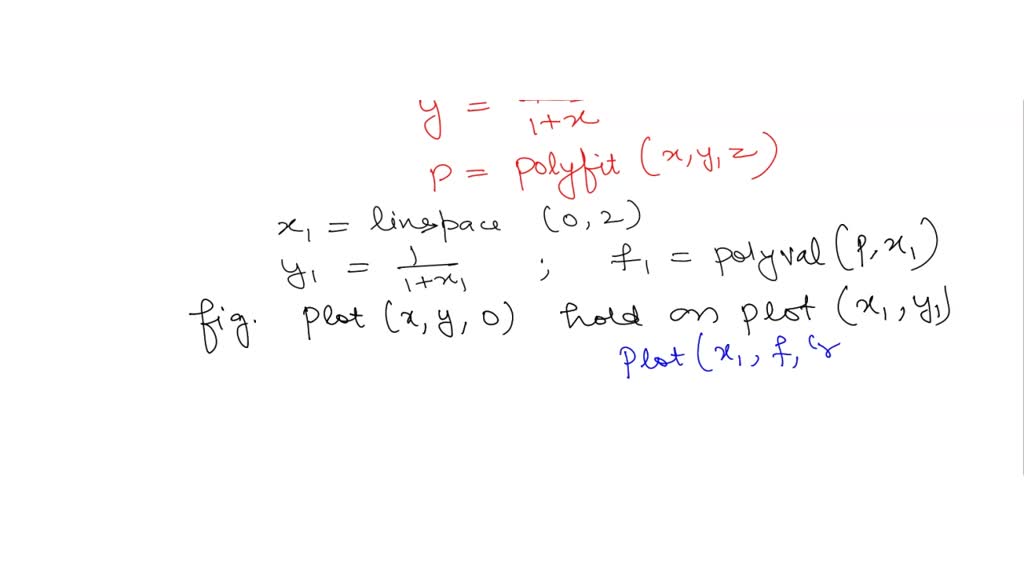 y = 1/(1+x)
P = polyfit (x, y, 2)
x₁ = linspace (0, 2)
y₁ = 1/(1+x₁) ; f₁ = polyval (P, x₁)
fig. plot (x, y, 0) hold on plot (x₁, y₁)
Plot (x₁, f, 'r